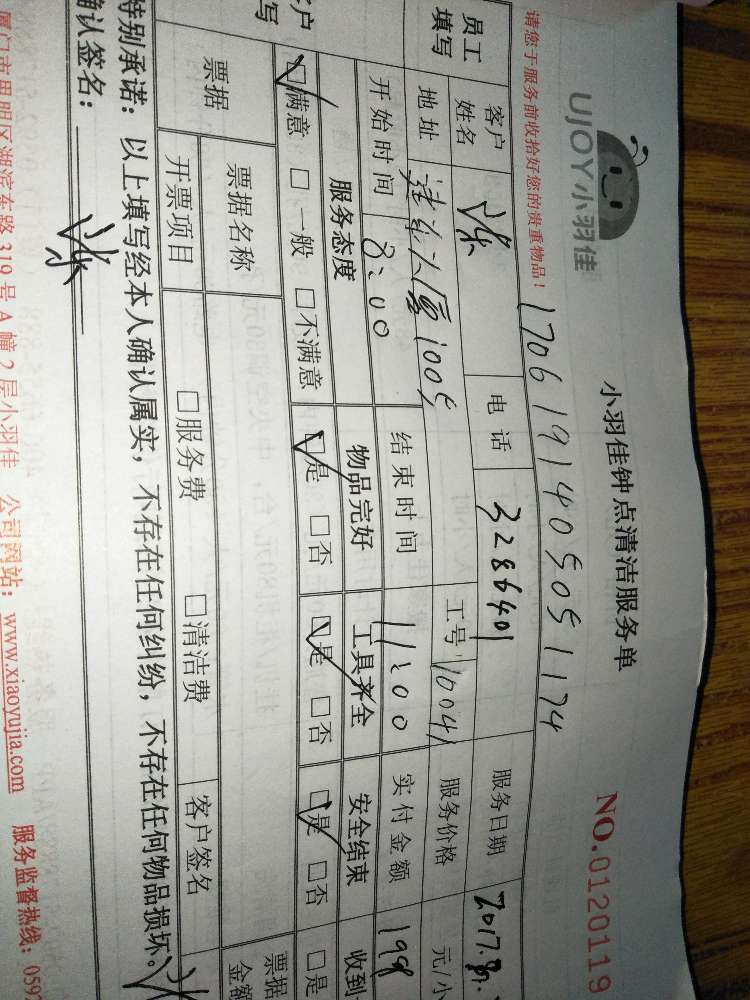 UJOY小羽佳
小羽佳钟点清洁服务单
NO.0120119
请您于服务前收拾好您的贵重物品!
1706191405051174
员工填写 客户姓名 电话 3286401 服务日期 2017.8.
地址 1005 工号 10041 服务价格 元/小
开始时间 8:00 结束时间 11:00 实付金额 198
户写 服务态度 物品完好 工具齐全 安全结束 收到
☑满意 □一般 □不满意 ☑是 □否 ☑是 □否 ☑是 □否 □是
票据 票据名称 票据金额
开票项目 □服务费 □清洁费 客户签名
特别承诺：以上填写经本人确认属实，不存在任何纠纷，不存在任何物品损坏。
确认签名：
厦门市思明区湖滨东路319号A幢2层小羽佳 公司网站：www.xiaoyujia.com 服务监督热线：0592